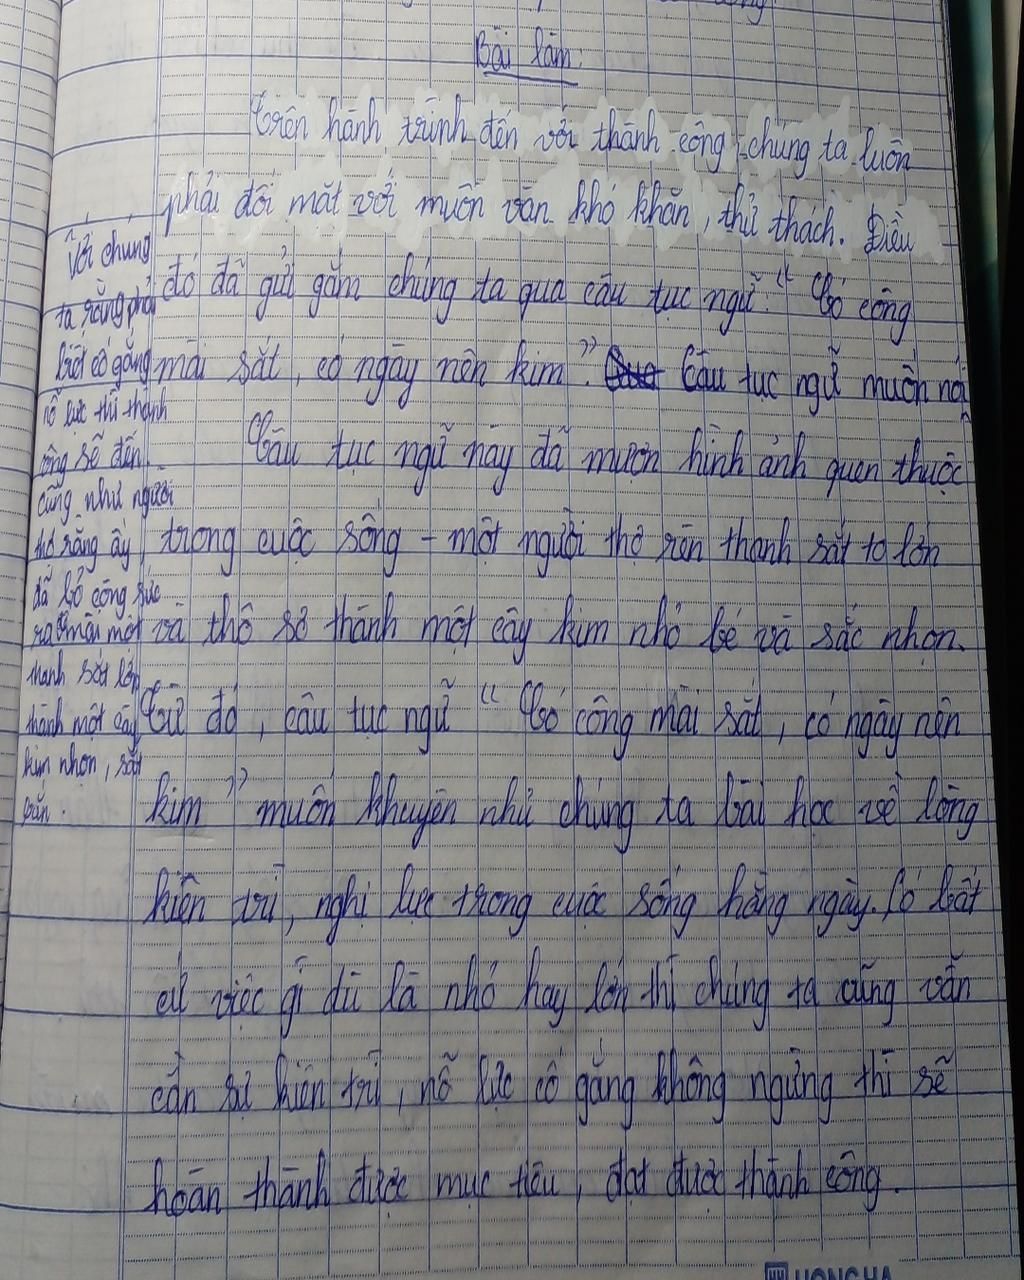 Bài làm:
Trên hành trình đến với thành công, chúng ta luôn
phải đối mặt với muôn vàn khó khăn, thử thách. Điều
đó đã gửi gắm chúng ta qua câu tục ngữ: "Có công
mài sắt, có ngày nên kim". Câu tục ngữ muốn nói
với chúng
ta rằng phải
biết cố gắng
nỗ lực thì thành
công sẽ đến
cũng như người
thợ rằng ấy
đã bỏ công sức
ra mài một
thanh sắt lớn
thành một cây
kim nhọn, sắt
bắn.
Câu tục ngữ này đã mượn hình ảnh quen thuộc
trong cuộc sống - một người thợ rèn thanh sắt to lớn
và thô sơ thành một cây kim nhỏ bé và sắc nhọn.
Từ đó, câu tục ngữ "Có công mài sắt, có ngày nên
kim" muốn khuyên nhủ chúng ta bài học về lòng
kiên trì, nghị lực trong cuộc sống hằng ngày. Có bất
cứ việc gì dù là nhỏ hay lớn thì chúng ta cũng vẫn
cần sự kiên trì, nỗ lực cố gắng không ngừng thì sẽ
hoàn thành được mục tiêu, đạt được thành công.
HONG HA